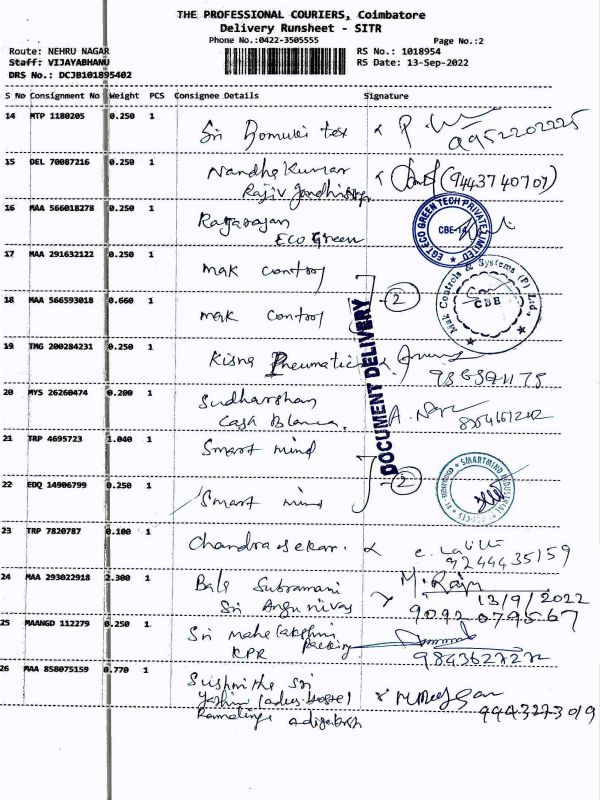 THE PROFESSIONAL COURIERS, Coimbatore
Delivery Runsheet - SITR
Phone No.:0422-3505555
Page No.:2
Route: NEHRU NAGAR
RS No.: 1018954
Staff: VIJAYABHANU
RS Date: 13-Sep-2022
DRS No.: DCJB101895402
S No Consignment No Weight PCS Consignee Details Signature
14 MTP 1180205 0.250 1
Sri tex
9952202225
15 DEL 70087216 0.250 1
Nandha Kumar
(9443740707)
Rajiv
16 MAA 566018278 0.250 1
Eco Green
EGT ECO GREEN TECH PRIVATE LIMITED
CBE-14
17 MAA 291632122 0.250 1
mak control
18 MAA 566593018 0.660 1
mak control
2
Mak Controls & Systems (P) Ltd.,
CBE
DOCUMENT DELIVERY
19 TMG 200284231 0.250 1
Kisna Pneumatic
20 MYS 26260474 0.200 1
Sudharshan
Casa Blanca
21 TRP 4695723 1.040 1
Smart mind
22 EDQ 14906799 0.250 1
Smart mind
2
SMARTMIND
23 TRP 7820787 0.100 1
Chandrasekar.
9244435159
24 MAA 293022918 2.300 1
Bala Subramani
M. Raju
13/9/2022
Sri
9092079567
25 MAANGD 112279 0.250 1
Sri mahalakshmi
Packing
KPR
26 MAA 858075159 0.770 1
Sushmitha Sri
9443273019